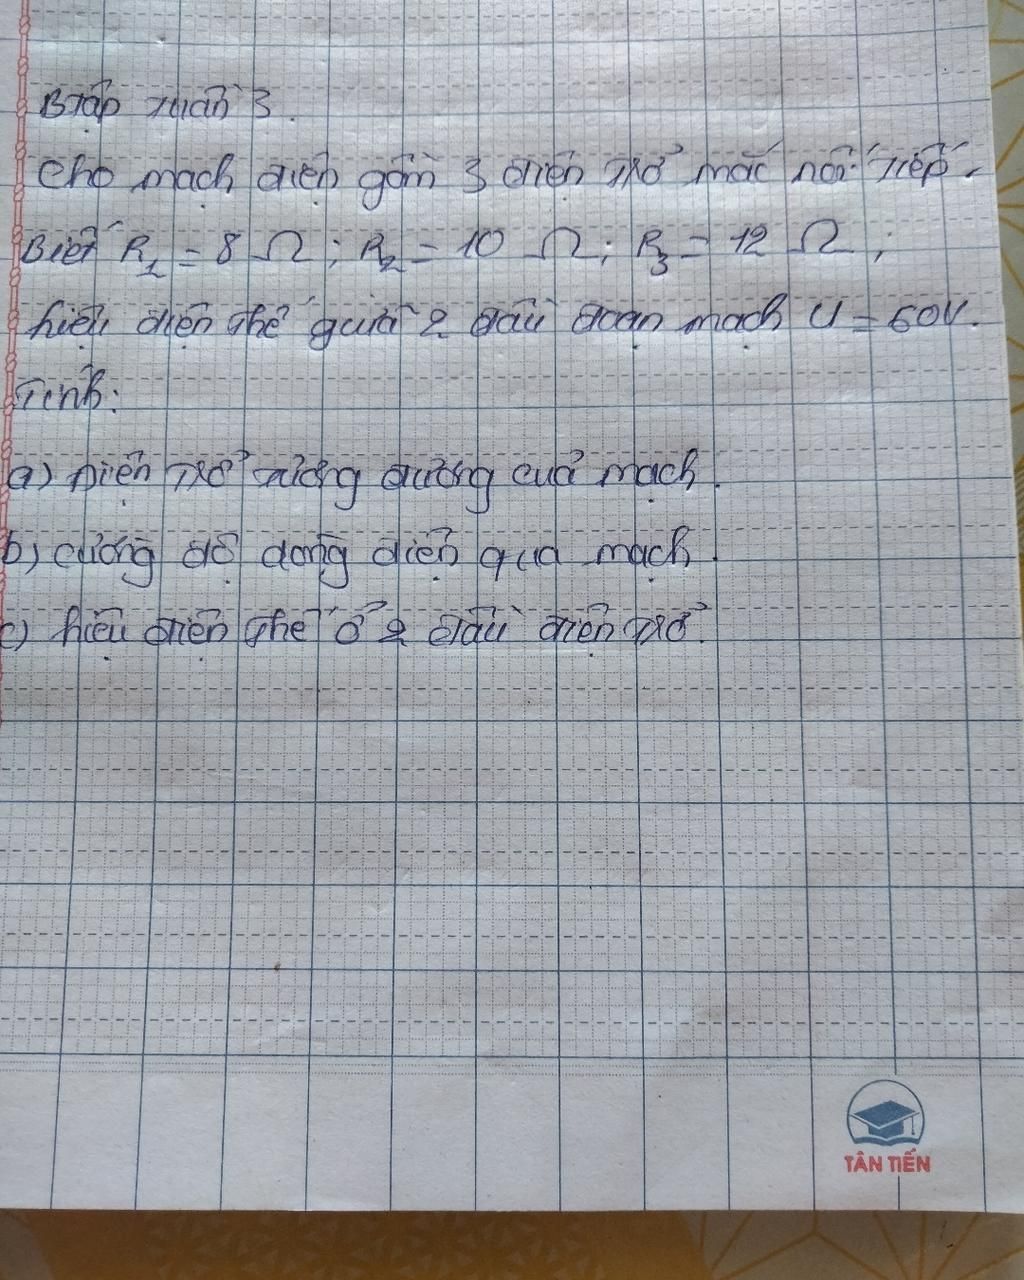 BTập tuần 3.
Cho mạch điện gồm 3 điện trở mắc nối tiếp.
Biết R₁ = 8 Ω ; R₂ = 10 Ω ; R₃ = 12 Ω ;
hiệu điện thế giữa 2 đầu đoạn mạch U = 60V.
Tính:
a) Điện trở tương đương của mạch.
b) cường độ dòng điện qua mạch.
c) hiệu điện thế ở 2 đầu điện trở.
TÂN TIẾN